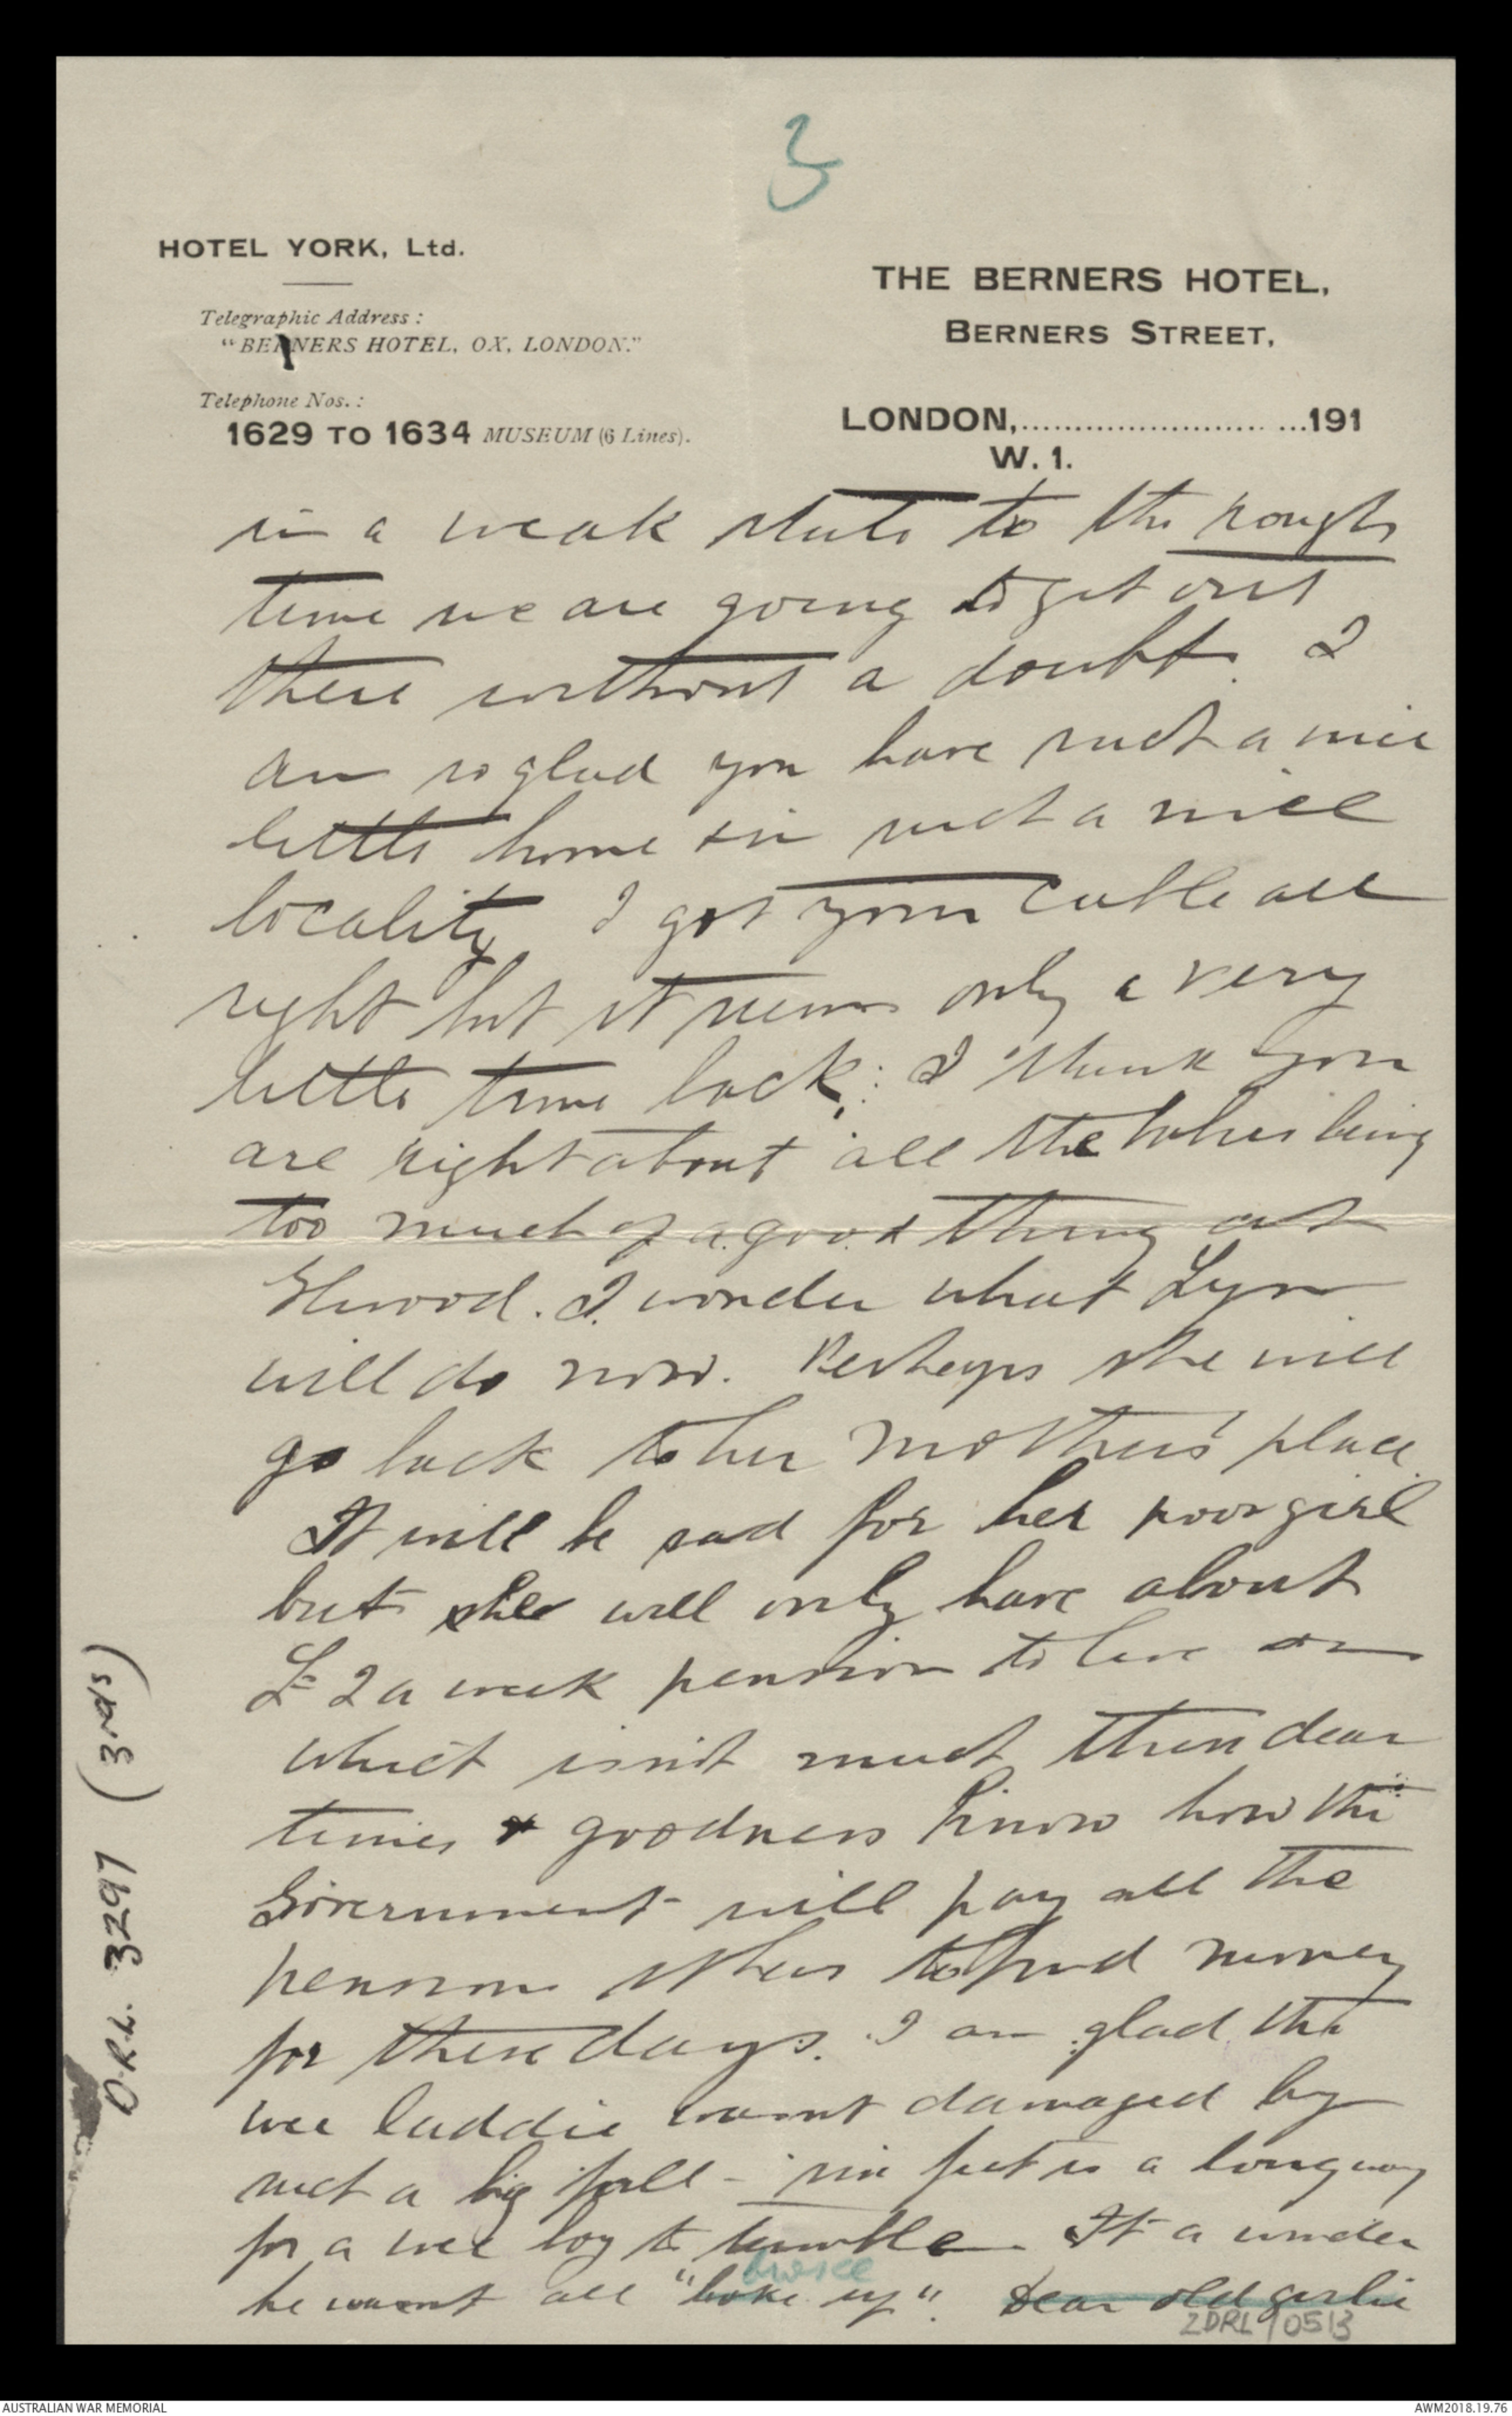 3
HOTEL YORK, Ltd.
Telegraphic Address :
"BERNERS HOTEL, OX, LONDON."
Telephone Nos. :
1629 TO 1634 MUSEUM (6 Lines).
THE BERNERS HOTEL,
BERNERS STREET,
LONDON,..............................191
W. 1.
in a weak state to the rough
time we are going to get out
there without a doubt. I
am so glad you have such a nice
little home in such a nice
locality I got your cable all
right but it seems only a very
little time back: I think you
are right about all the babies being
too much of a good thing at
Elwood. I wonder what Lyn
will do now. Perhaps she will
go back to her mother's place.
It will be sad for her poor girl
but she will only have about
£2 a week pension to live on
which isn't much these dear
times & goodness knows how the
Government will pay all the
pensions theres to find money
for these days. I am glad the
wee laddie wasnt damaged by
such a big fall - six feet is a long way
for a wee boy to tumble. It a wonder
he wasnt all "boke up". Dear old girlie
(3rds) 3297 D.R.L.
2DRL/0513
AUSTRALIAN WAR MEMORIAL
AWM2018.19.76